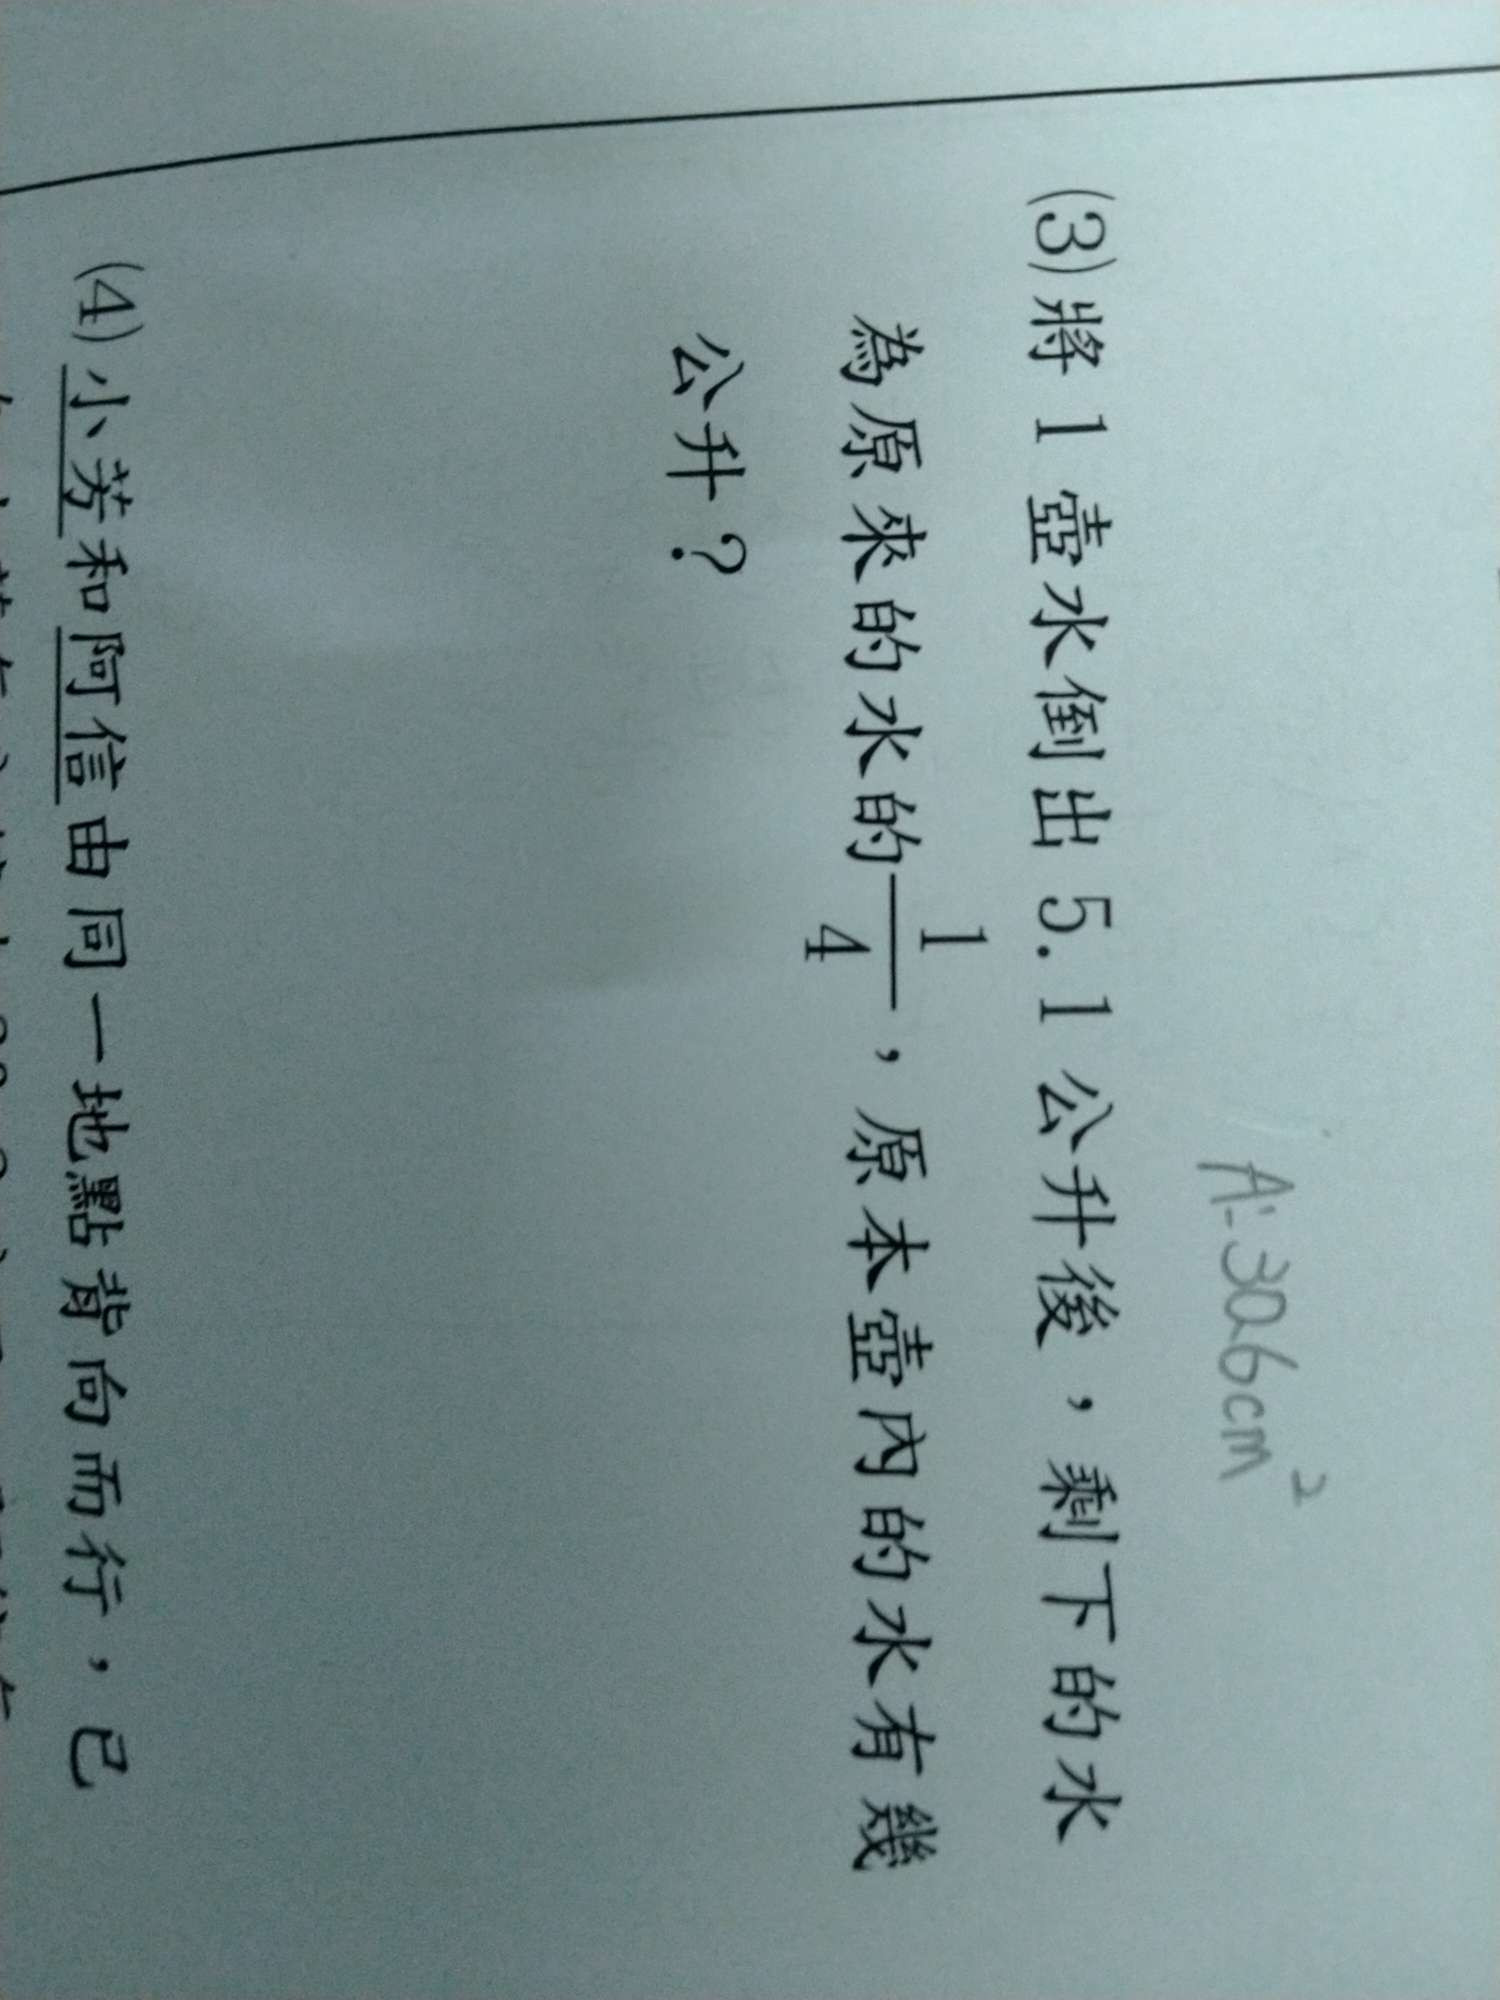 A:306cm²
(3)將1壺水倒出5.1公升後,剩下的水
為原來的水的1/4,原本壺內的水有幾
公升?
(4)小芳和阿信由同一地點背向而行,已